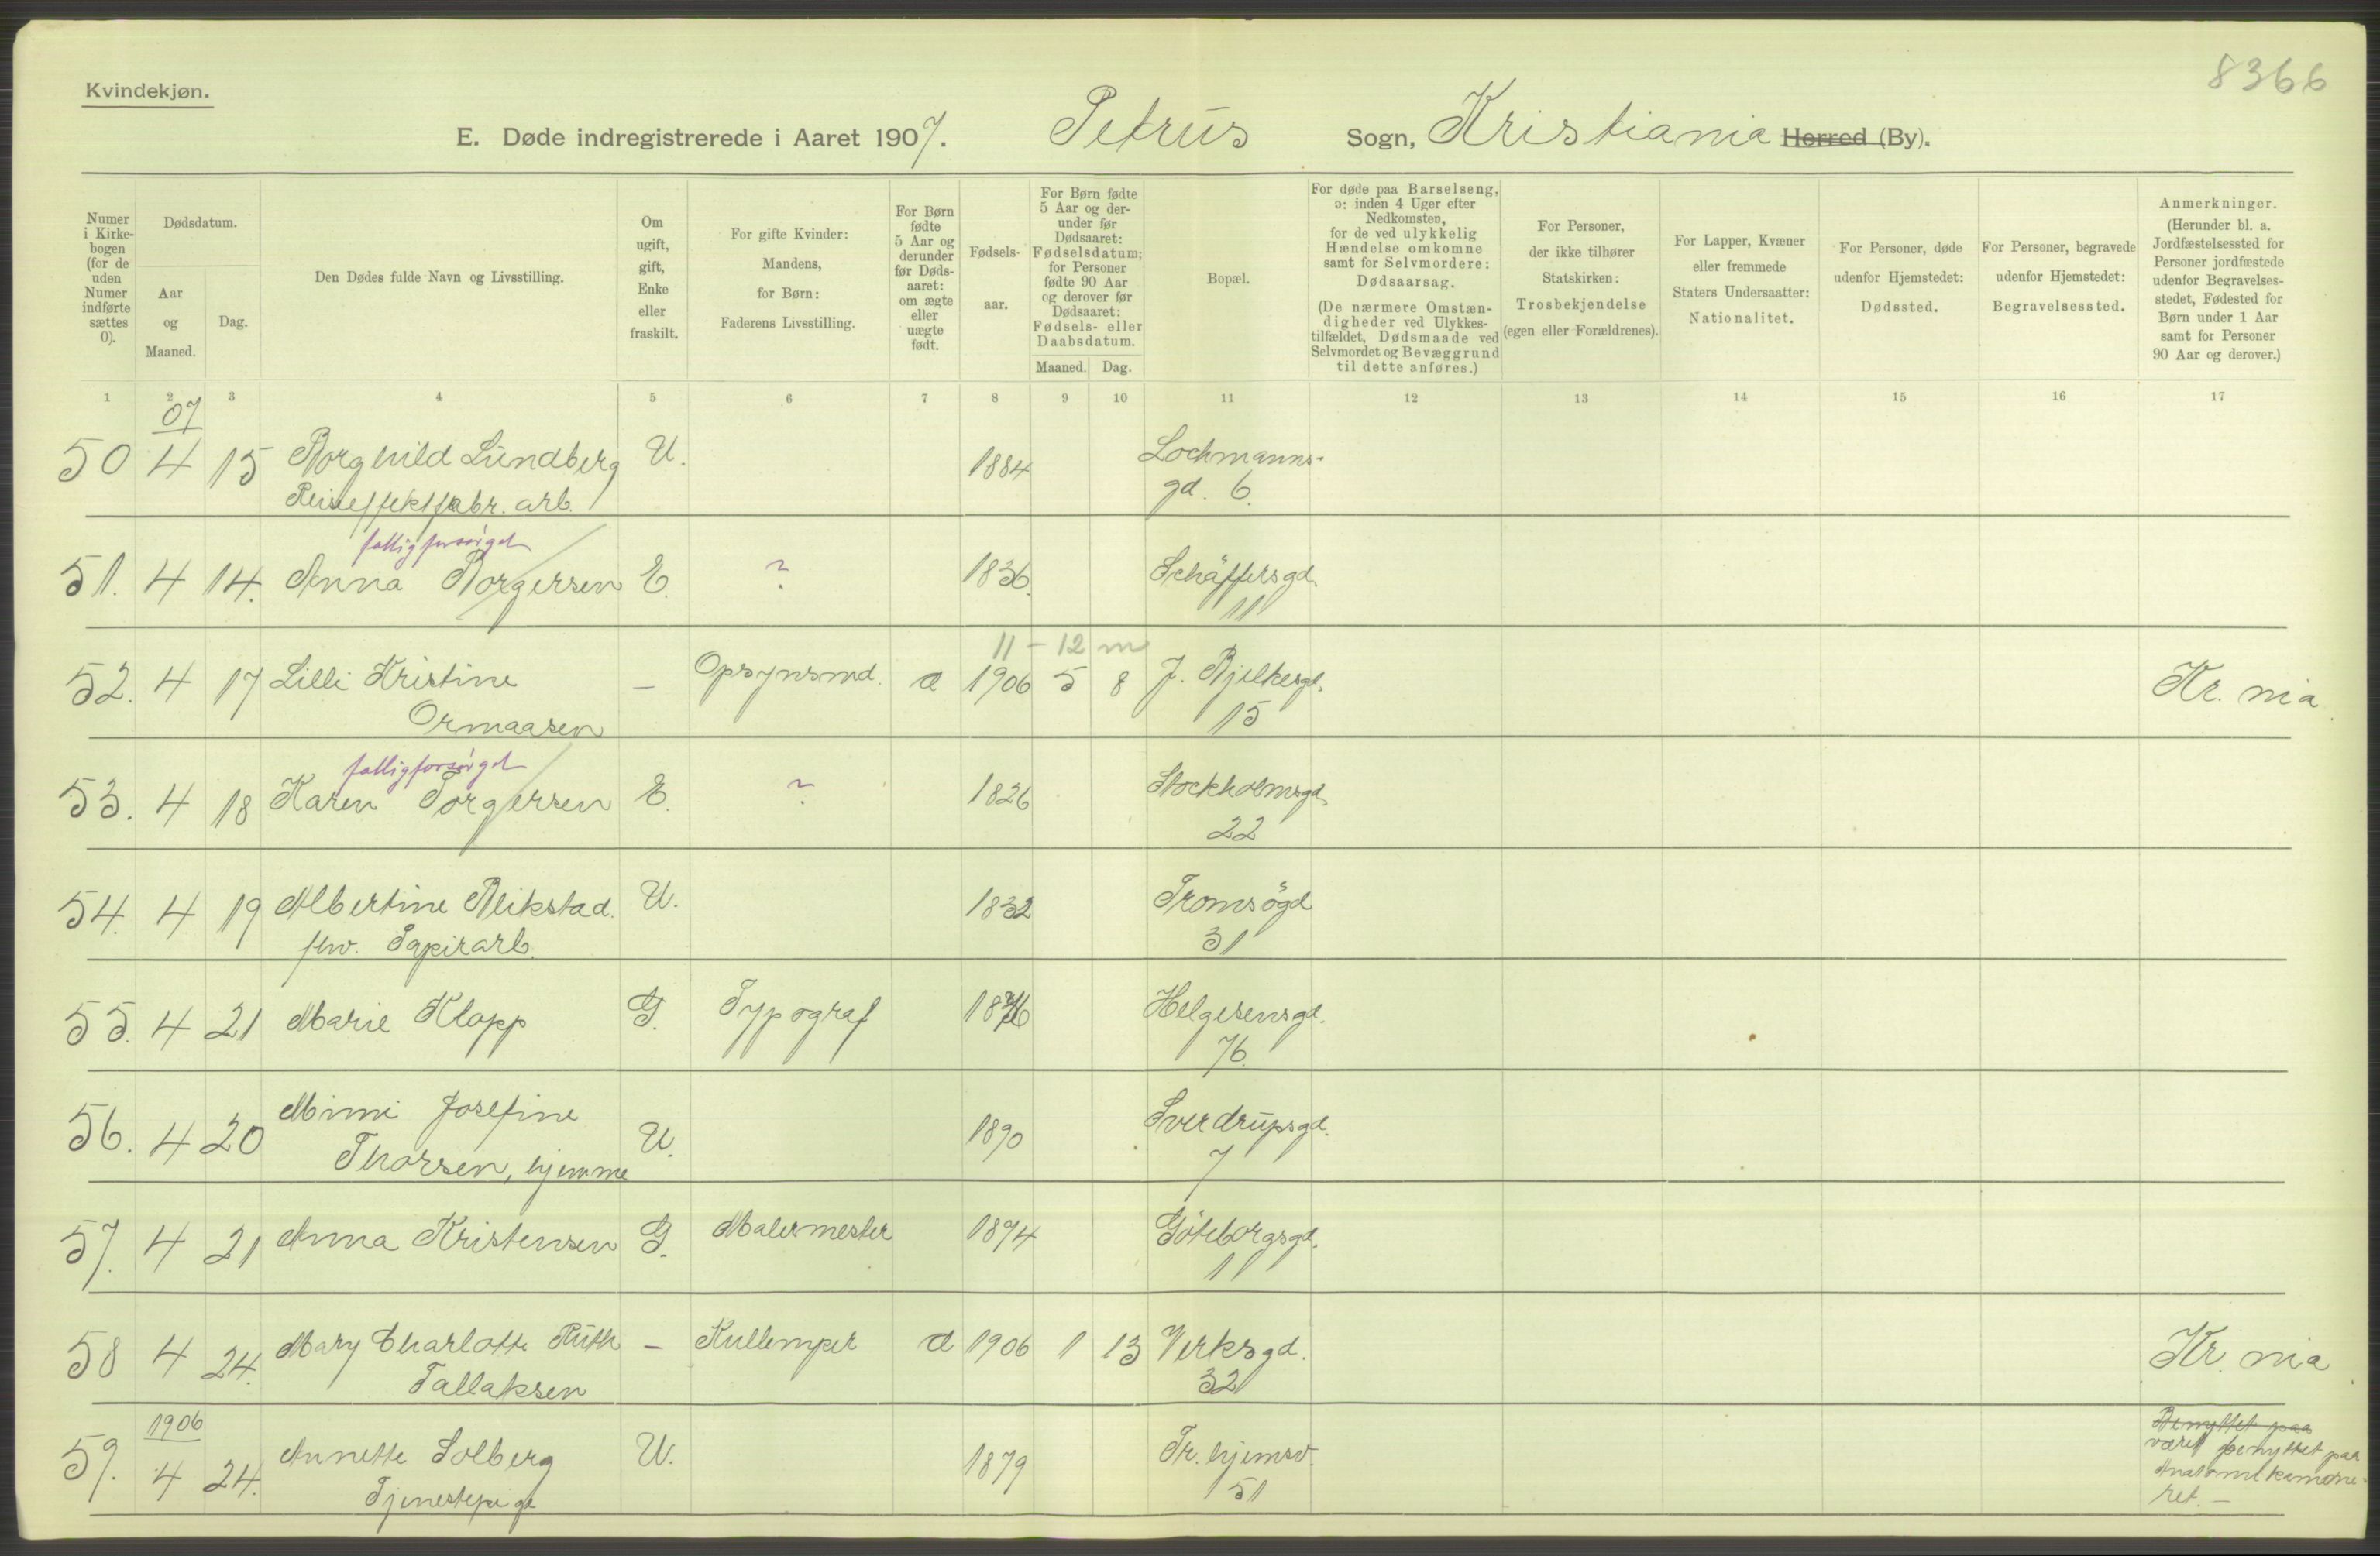 8366
Kvindekjøn.
E. Døde indregistrerede i Aaret 1907. Petrus Sogn, Kristiania Herred (By).
Numer i Kirkebogen (for de uden Numer indførte sættes 0).
Dødsdatum.
Aar og Maaned.
Dag.
Den Dødes fulde Navn og Livsstilling.
Om ugift, gift, Enke eller fraskilt.
For gifte Kvinder: Mandens, for Børn: Faderens Livsstilling.
For Børn fødte 5 Aar og derunder før Dødsaaret: om ægte eller uægte født.
Fødselsaar.
For Børn fødte 5 Aar og derunder før Dødsaaret: Fødselsdatum; for Personer fødte 90 Aar og derover før Dødsaaret: Fødsels- eller Daabsdatum.
Maaned. Dag.
Bopæl.
For døde paa Barselseng, ɔ: inden 4 Uger efter Nedkomsten, for de ved ulykkelig Hændelse omkomne samt for Selvmordere: Dødsaarsag.
(De nærmere Omstændigheder ved Ulykkestilfældet, Dødsmaade ved Selvmordet og Bevæggrund til dette anføres.)
For Personer, der ikke tilhører Statskirken: Trosbekjendelse (egen eller Forældrenes).
For Lapper, Kvæner eller fremmede Staters Undersaatter: Nationalitet.
For Personer, døde udenfor Hjemstedet: Dødssted.
For Personer, begravede udenfor Hjemstedet: Begravelsessted.
Anmerkninger. (Herunder bl. a. Jordfæstelsessted for Personer jordfæstede udenfor Begravelsesstedet, Fødested for Børn under 1 Aar samt for Personer 90 Aar og derover.)
1 2 3 4 5 6 7 8 9 10 11 12 13 14 15 16 17
07
50 4 15 Borghild Lundberg U. 1884 Lochmanns-
Reiseffektfabr. arb. gd. 6.
fattigforsørget
51. 4 14. Anna Borgersen E. ? 1836. Schäffersgd.
11
11 - 12 m
52. 4 17 Lilli Kristine — Opsynsmd. æ 1906 5 8 J. Bjelkesgd. Kr. nia
Ormaasen 15
fattigforsørget
53. 4 18 Karen Torgersen E. ? 1826 Stockholmsgd.
22
54. 4 19 Albertine Reikstad. U. 1832 Tromsögd
fhv. Papirarb. 31
55. 4 21 Marie Klopp G. Typograf Helgesensgd.
76
56. 4 20 Mimi Josefine U. 1890 Sverdrupsgd.
Thorsen, hjemme 7
57. 4 21 Anna Kristensen G. Malermester 1874 Göteborgsgd.
11
58 4 24. Mary Charlotte Ruth — Kullemper æ 1906 1 13 Verksgd. Kr. nia
Tallaksen 32
1906
59. 4 24. Annette Solberg U. 1879 Tr. hjemsv. Benyttet paa
Tjenestepige 51 været benyttet paa
Anatomikamme-
ret. —